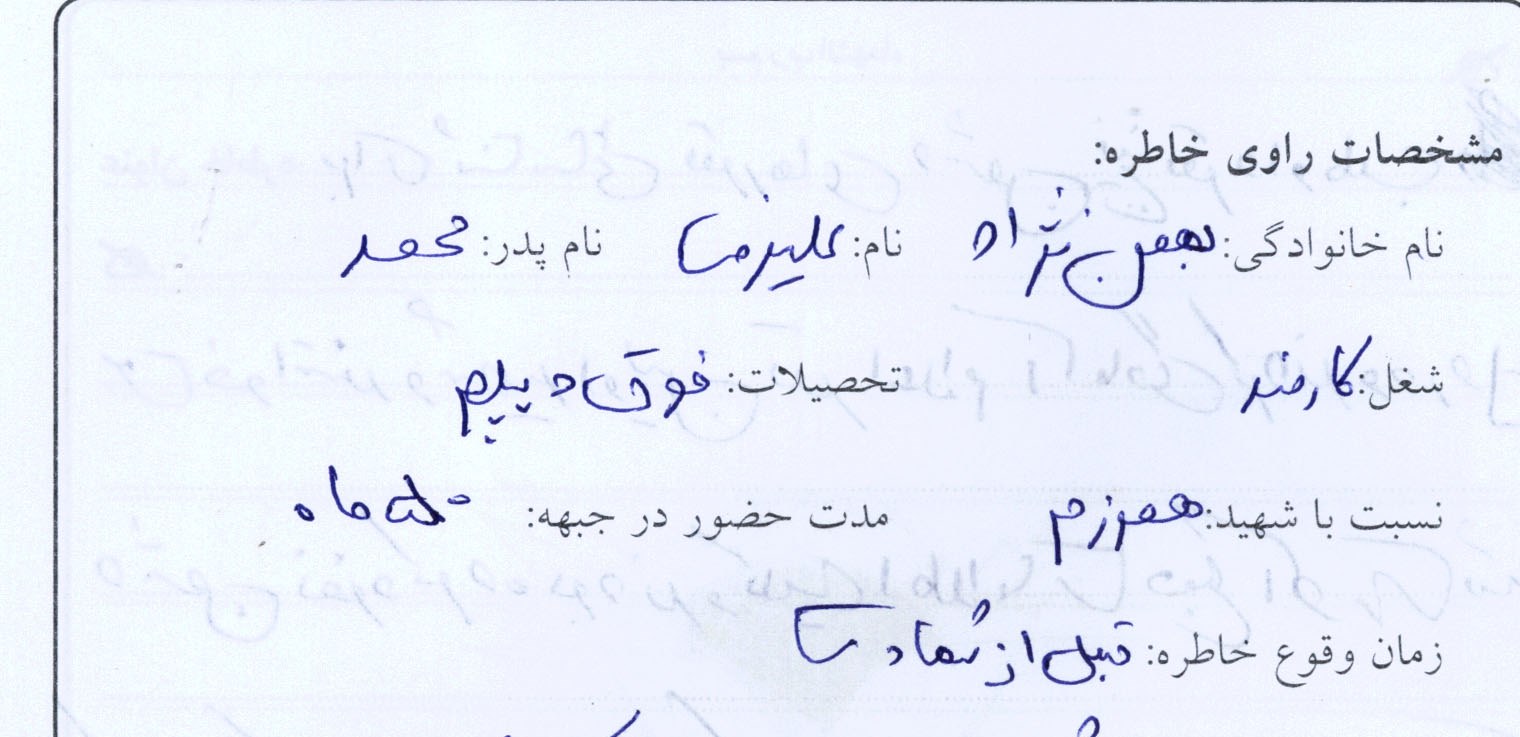 مشخصات راوی خاطره:
نام خانوادگی: بهمن نژاد نام: علیرضا نام پدر: محمد
شغل: کارمند تحصیلات: فوق دیپلم
نسبت با شهید: همرزم مدت حضور در جبهه: ماه
زمان وقوع خاطره: قبل از شهادت